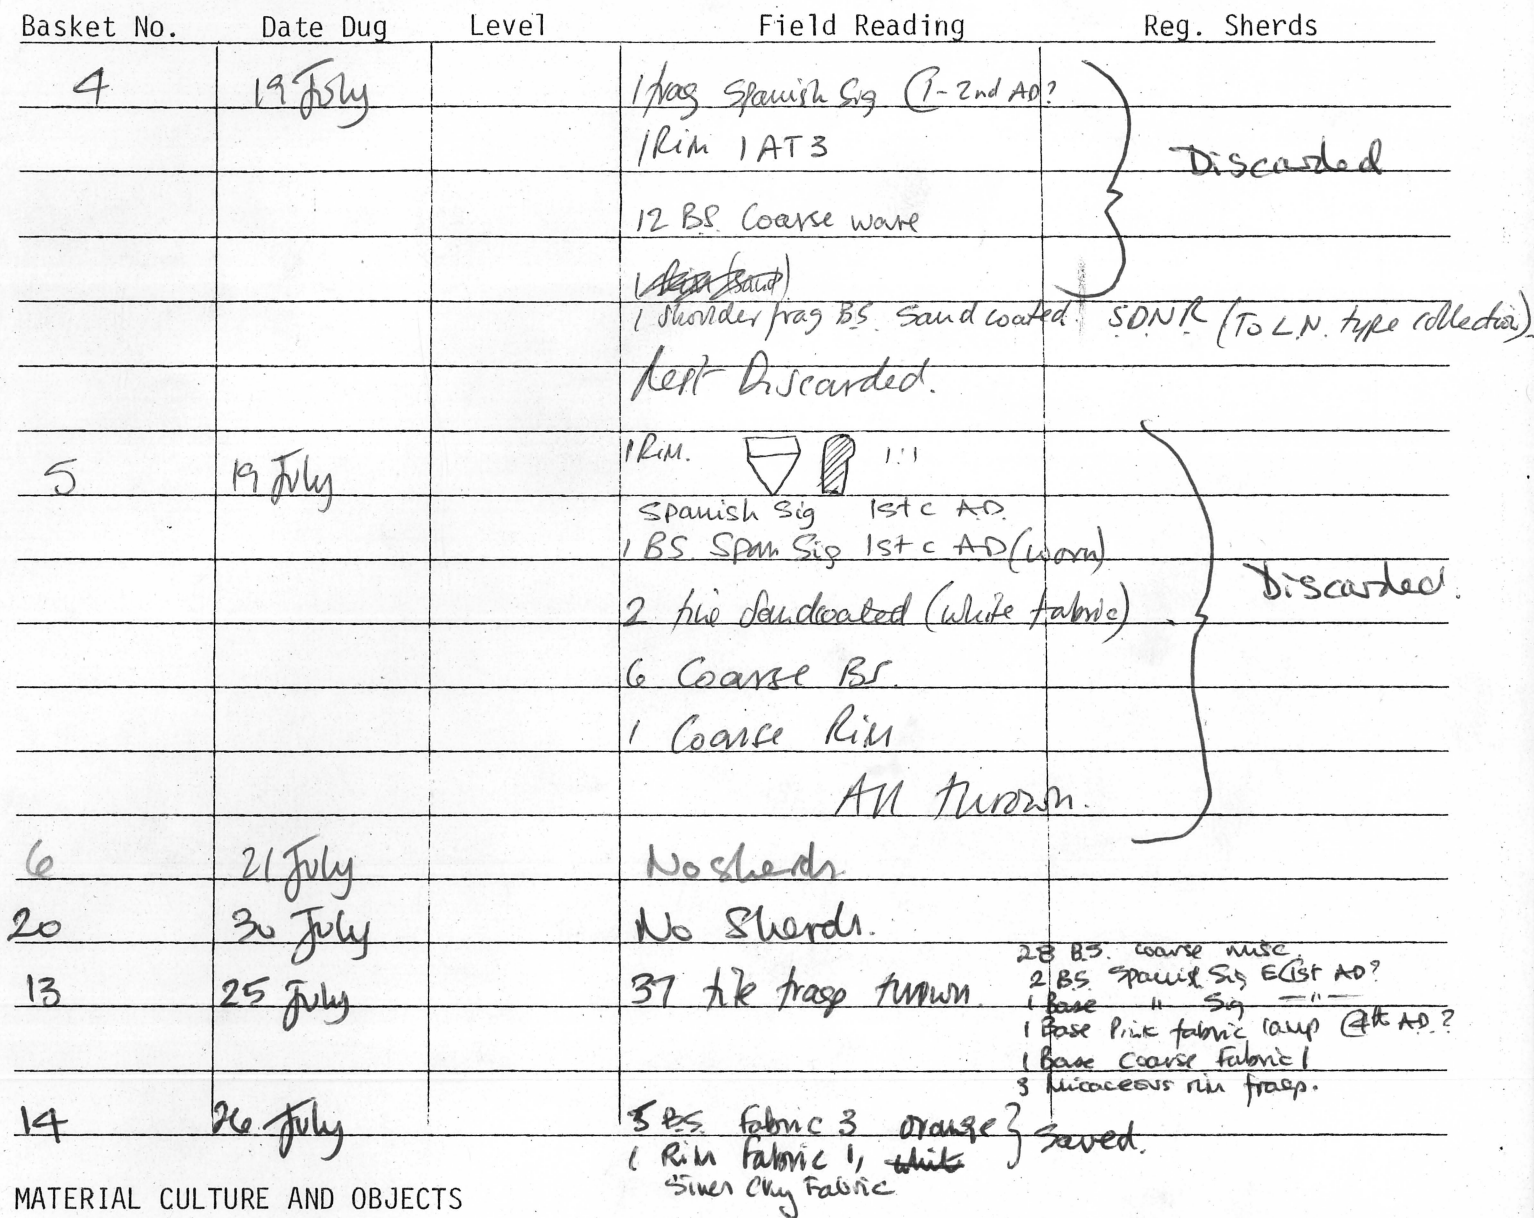 Basket No. Date Dug Level Field Reading Reg. Sherds
4 19 July 1 frag Spanish Sig (1-2nd AD?
1 Rim 1 AT 3
Discarded
12 BS. Coarse ware
1 shoulder frag BS. Sand coated. SDNR (To L.N. type collection).
Rest Discarded.
5 19 July 1 Rim. 1:1
Spanish Sig 1st c A.D.
1 BS. Span Sig 1st c AD (worn)
Discarded.
2 fine Sandcoated (white fabric)
6 Coarse BS.
1 Coarse Rim
All thrown.
6 21 July No sherds
20 30 July No Sherds.
28 BS. coarse misc.
13 25 July 37 tile frags thrown. 2 BS. Spanish Sig 1st AD?
1 Base " Sig —"—
1 Base Pink fabric lamp 4th AD.?
1 Base Coarse Fabric 1
3 Micaceous rim frags.
14 26 July 5 BS. Fabric 3 orange } Saved.
1 Rim Fabric 1, white
Clay Fabric
MATERIAL CULTURE AND OBJECTS